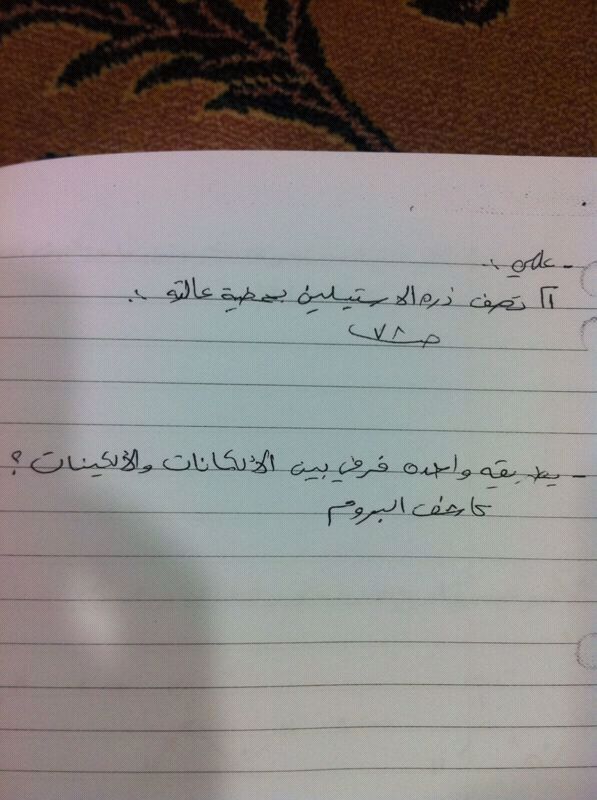 - عللي :.
١] تعرف ذره الاستيلين بحمضية عالته :.
ص٧٨
- بطريقه واحده فرقي بين الألكانات والألكينات ؟
كاشف البروم